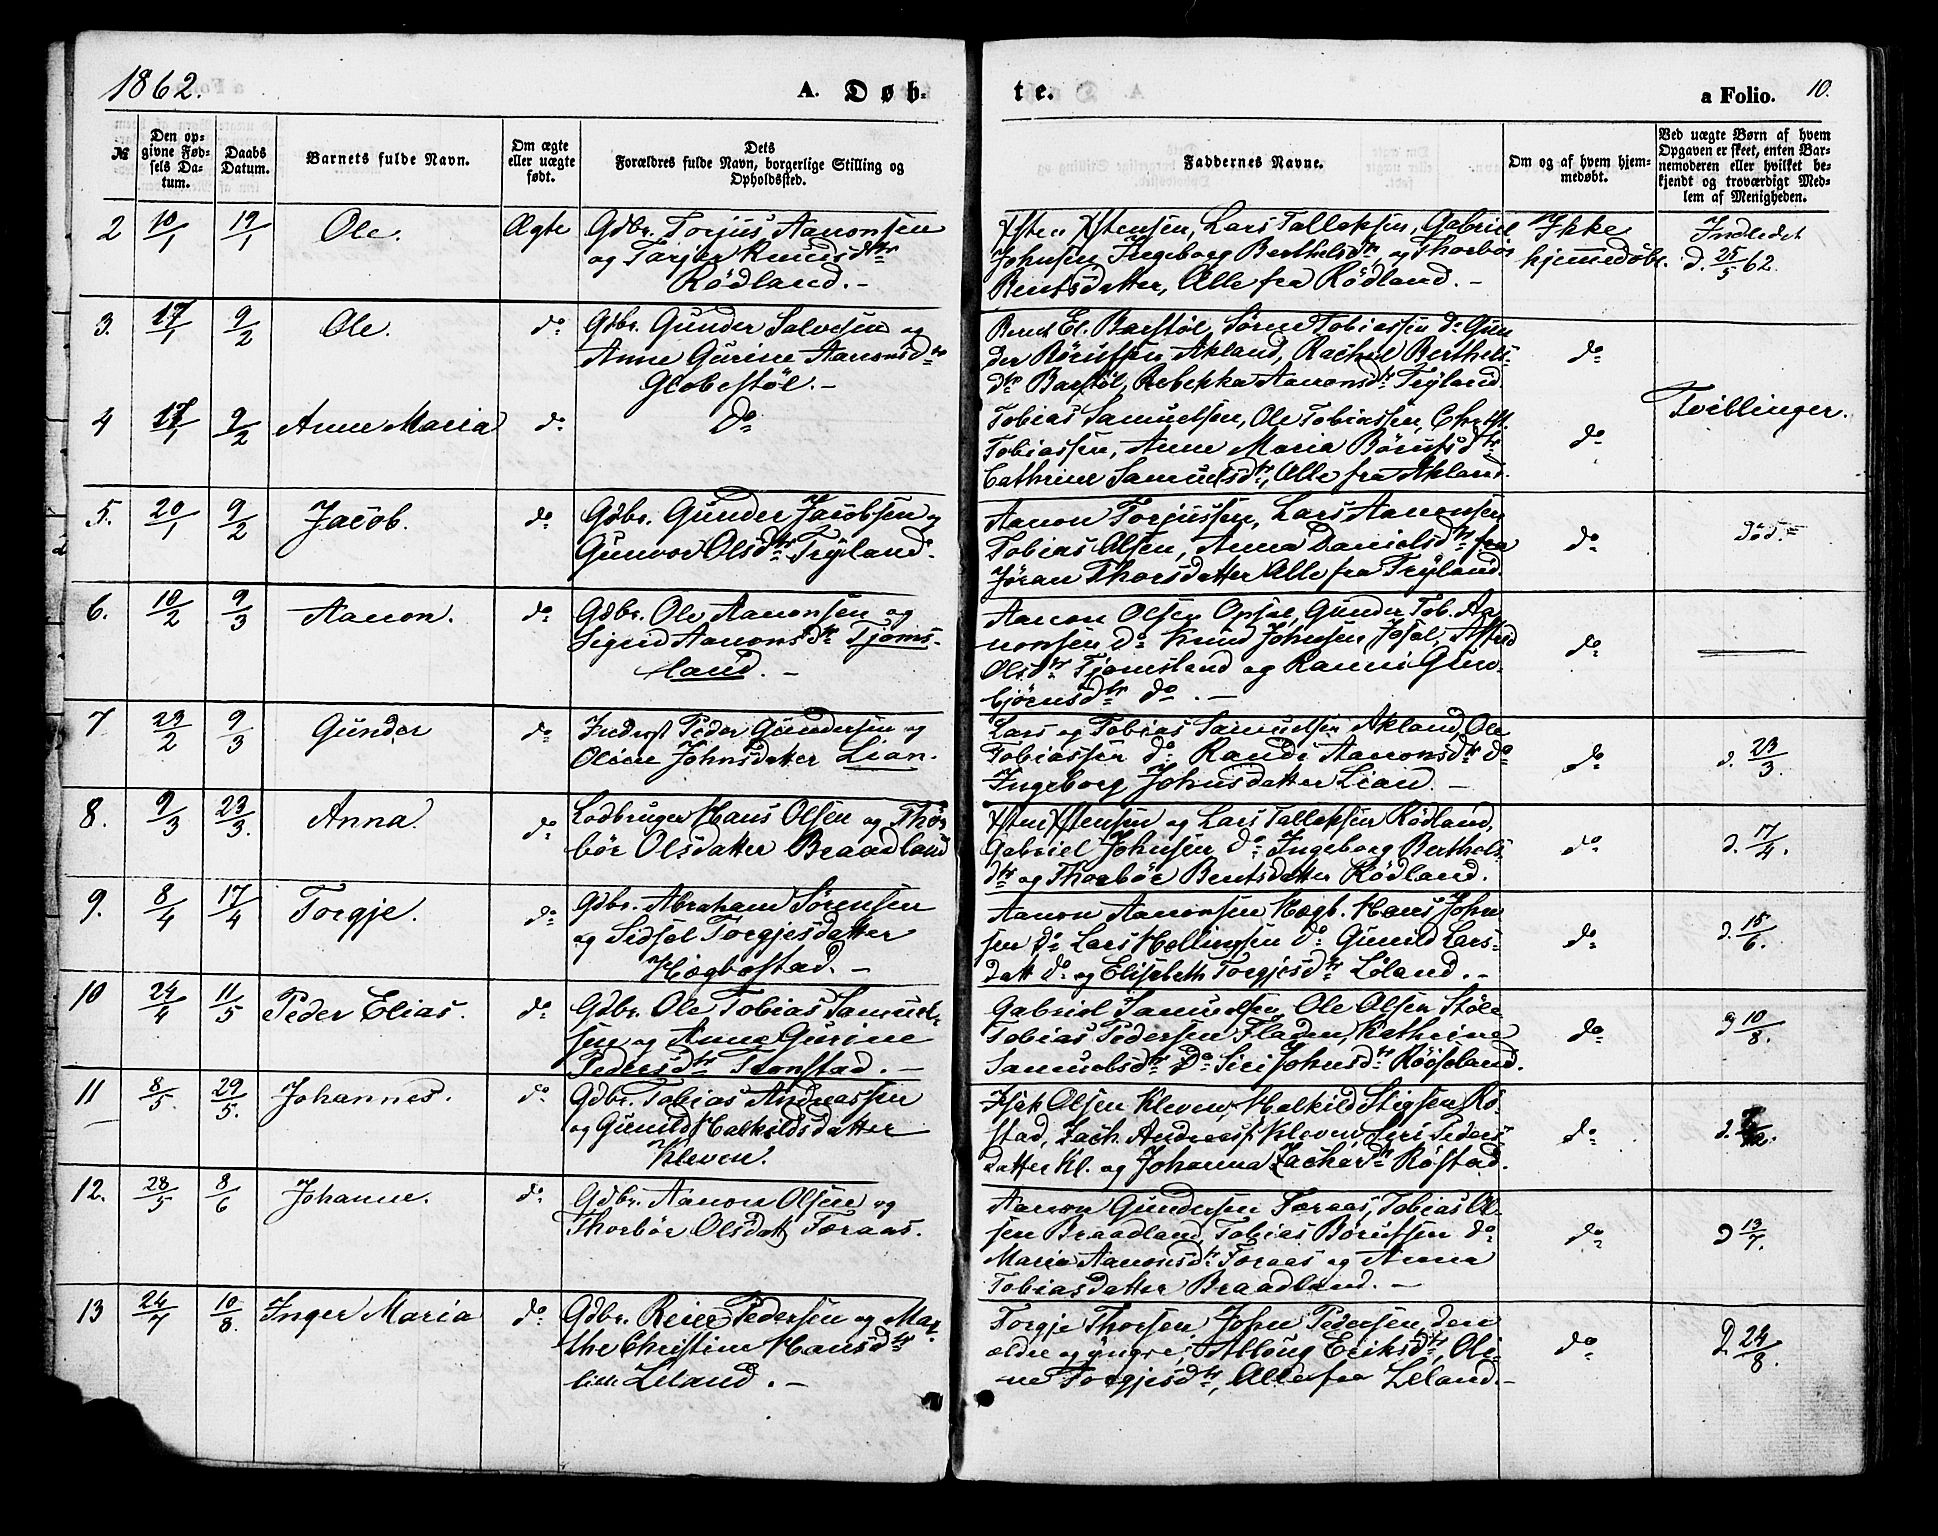 1862.
A. Døb-
te.
a Folio. 10.
№
Den op-
givne Fød-
sels Da-
tum.
Daabs
Datum.
Barnets fulde Navn.
Om ægte
eller uægte
født.
Dets
Forældres fulde Navn, borgerlige Stilling og
Opholdssted.
Faddernes Navne.
Om og af hvem hjem-
medøbt.
Ved uægte Børn af hvem
Opgaven er skeet, enten Bar-
nemoderen eller hvilket be-
kjendt og troværdigt Med-
lem af Menigheden.
2 10/1 19/1 Ole. Ægte
Gdbr. Torjus Aanonsen
og Tarjer Knudsdtr
Rödland. –
Lars Tallaksen, Gabriel
Johnsen Ingeborg Berthelsdtr, og Thorbör
Bentsdatter, Alle fra Rödland. –
Ikke
hjemmedöbt.
Indledet
d. 25/5 62.
3. 17/1 9/2 Ole. do
Gdbr. Gunder Salvesen og
Anne Gurine Aanonsdtr
Glöbestöl. –
Bernt El. Barstöl, Sören Tobiassen do Gun-
der Börufsen Akland, Rachel Berthels-
dtr Barstöl, Rebekka Aanonsdtr Trÿland.
do
4 17/1 9/2 Anne Maria do
do
Tobias Samuelsen, Ole Tobiassen,
Tobiassen, Anne Maria Börufsdtr
Cathrine Samuelsdtr, Alle fra Akland.
do
Tvillinger.
5. 20/1 9/2 Jacob. do
Gdbr. Gunder Jacobsen og
Gunvor Olsdtr Trÿland.
Aanon Torjussen, Lars Aanonsen
Tobias Olsen, Anna Danielsdtr fra
Jöran Thorsdatter Alle fra Trÿland.
do
död. –
6. 10/2 9/3 Aanon. do
Gdbr. Ole Aanonsen og
Sigrid Aanonsdtr Tjoms-
land. –
Aanon Olsen Opsal, Gunder Tob. Aa-
nonsen do Knud Johnsen
Olsdtr Tjomsland og Ranni Gun-
björnsdtr do. –
do
7 23/2 9/3 Gunder do
Inderst Peder Gundersen og
Oline Johnsdatter Lian.
Lars og Tobias Samuelsen Akland, Ole
Tobiassen do Randi Aanonsdtr do
Ingeborg Johnsdatter Lian. –
do
d. 23/3.
8. 9/3 23/3. Anna. do
Lodbruger Hans Olsen og Thor-
bör Olsdatter Braadland
og Lars Tallaksen Rödland,
Gabriel Johnsen do Ingeborg Berthels-
dtr og Thorbör Bentsdatter Rödland.
do
d. 17/4.
9. 8/4 17/4 Torgje. do
Gdbr. Abraham Sörensen
og Sidsel Torgjesdatter
Hægbostad. –
Aanon Aanonsen Hægb. Hans John-
sen do Lars Hallingsen do Gunild Lars-
datt do og Elisabeth Torgjesdtr Löland. –
do
d. 15/6.
10 24/4 11/5 Peder Elias. do
Gdbr. Ole Tobias Samuel-
sen og Anne Gurine
Pedersdtr Tronstad. –
Gabriel Samuelsen, Ole Olsen Stöle
Tobias Pedersen Fladen, Kathrine
Samuelsdtr do Siri Johnsdtr Röiseland.
do
d 10/8.
11 8/5. 29/5. Johannes. do
Gdbr. Tobias Andreassen
og Gunild Halkildsdatter
Kleven.
Isak Olsen Kleven, Halkild Stigsen Rö-
stad, Zach. Andreass. Kleven, Siri Peders-
datter Kl. og Johanna Zachardtr Röstad.
do
12. 28/5 8/6 Johanne. do
Gdbr. Aanon Olsen og
Thorbör Olsdatt Foraas.
Aanon Gundersen Foraas, Tobias Ol-
sen Braadland, Tobias Börufsen do
Maria Aanonsdtr Foraas og Anna
Tobiasdatter Braadland. –
do
d 13/7.
13 24/7 10/8. Inger Maria do
Gdbr. Reier Pedersen og Mar-
the Christine Hansdtr
lille Leland. –
Torgje Thorsen, John Pedersen den
ældre og yngre, Allöug Eriksdtr, Oli-
ne Torgjesdtr, Alle fra Leland. –
do
d. 24/8.